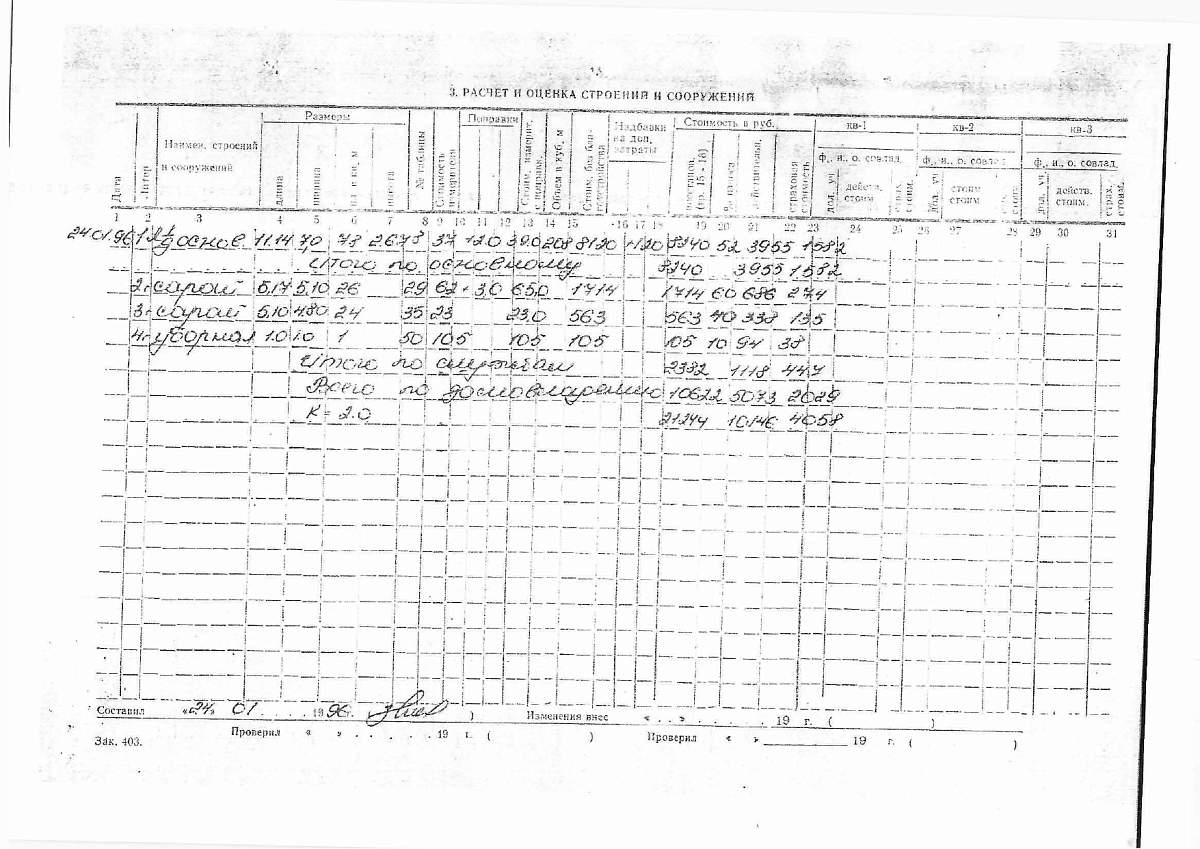 3. РАСЧЕТ И ОЦЕНКА СТРОЕНИЙ И СООРУЖЕНИЙ
Дата
Литер
Наимен. строений и сооружений
Размеры
длина
ширина
пл. в кв. м
высота
№ таблицы
Стоимость измерителя
Поправки
Стоим. измерит. с поправк.
Объем в куб. м
Надбавки на доп. затраты
Стоимость в руб.
восстанов. (гр. 15 - 18)
% износа
действительн.
страховая стоимость
кв-1
кв-2
кв-3
ф., и., о. совлад.
ф., и., о. совлад.
ф., и., о. совлад.
дол. уч.
действ. стоим
страх. стоим.
дол. уч.
стоим стоим
дол. уч.
действ. стоим.
страх. стоим.
1 2 3 4 5 6 7 8 9 10 11 12 13 14 15 16 17 18 19 20 21 22 23 24 25 26 27 28 29 30 31
24.01.96 1 11.14 7,0 78 2.67 37 12.0 39.0 208 8120 +120 8240 52 3955 1582
Итого по основному 8240 3955 1582
2. сарай 5,17 5,10 26 29 62 + 3.0 65.0 1714 1714 60 686 274
3. сарай 5,10 4.80 24 35 23 23.0 563 563 40 338 135
4. уборная 1.0 1.0 1 50 105 105 105 105 10 94 38
Итого по службам 2382 1118 447
Всего по домовладению 10622 5073 2029
К = 2.0 21244 10146 4058
Составил «24» 01 1996г. )
Изменения внес « » 19 г. ( )
Проверил « » 19 г. ( )
Проверил « » 19 г. ( )
Зак. 403.